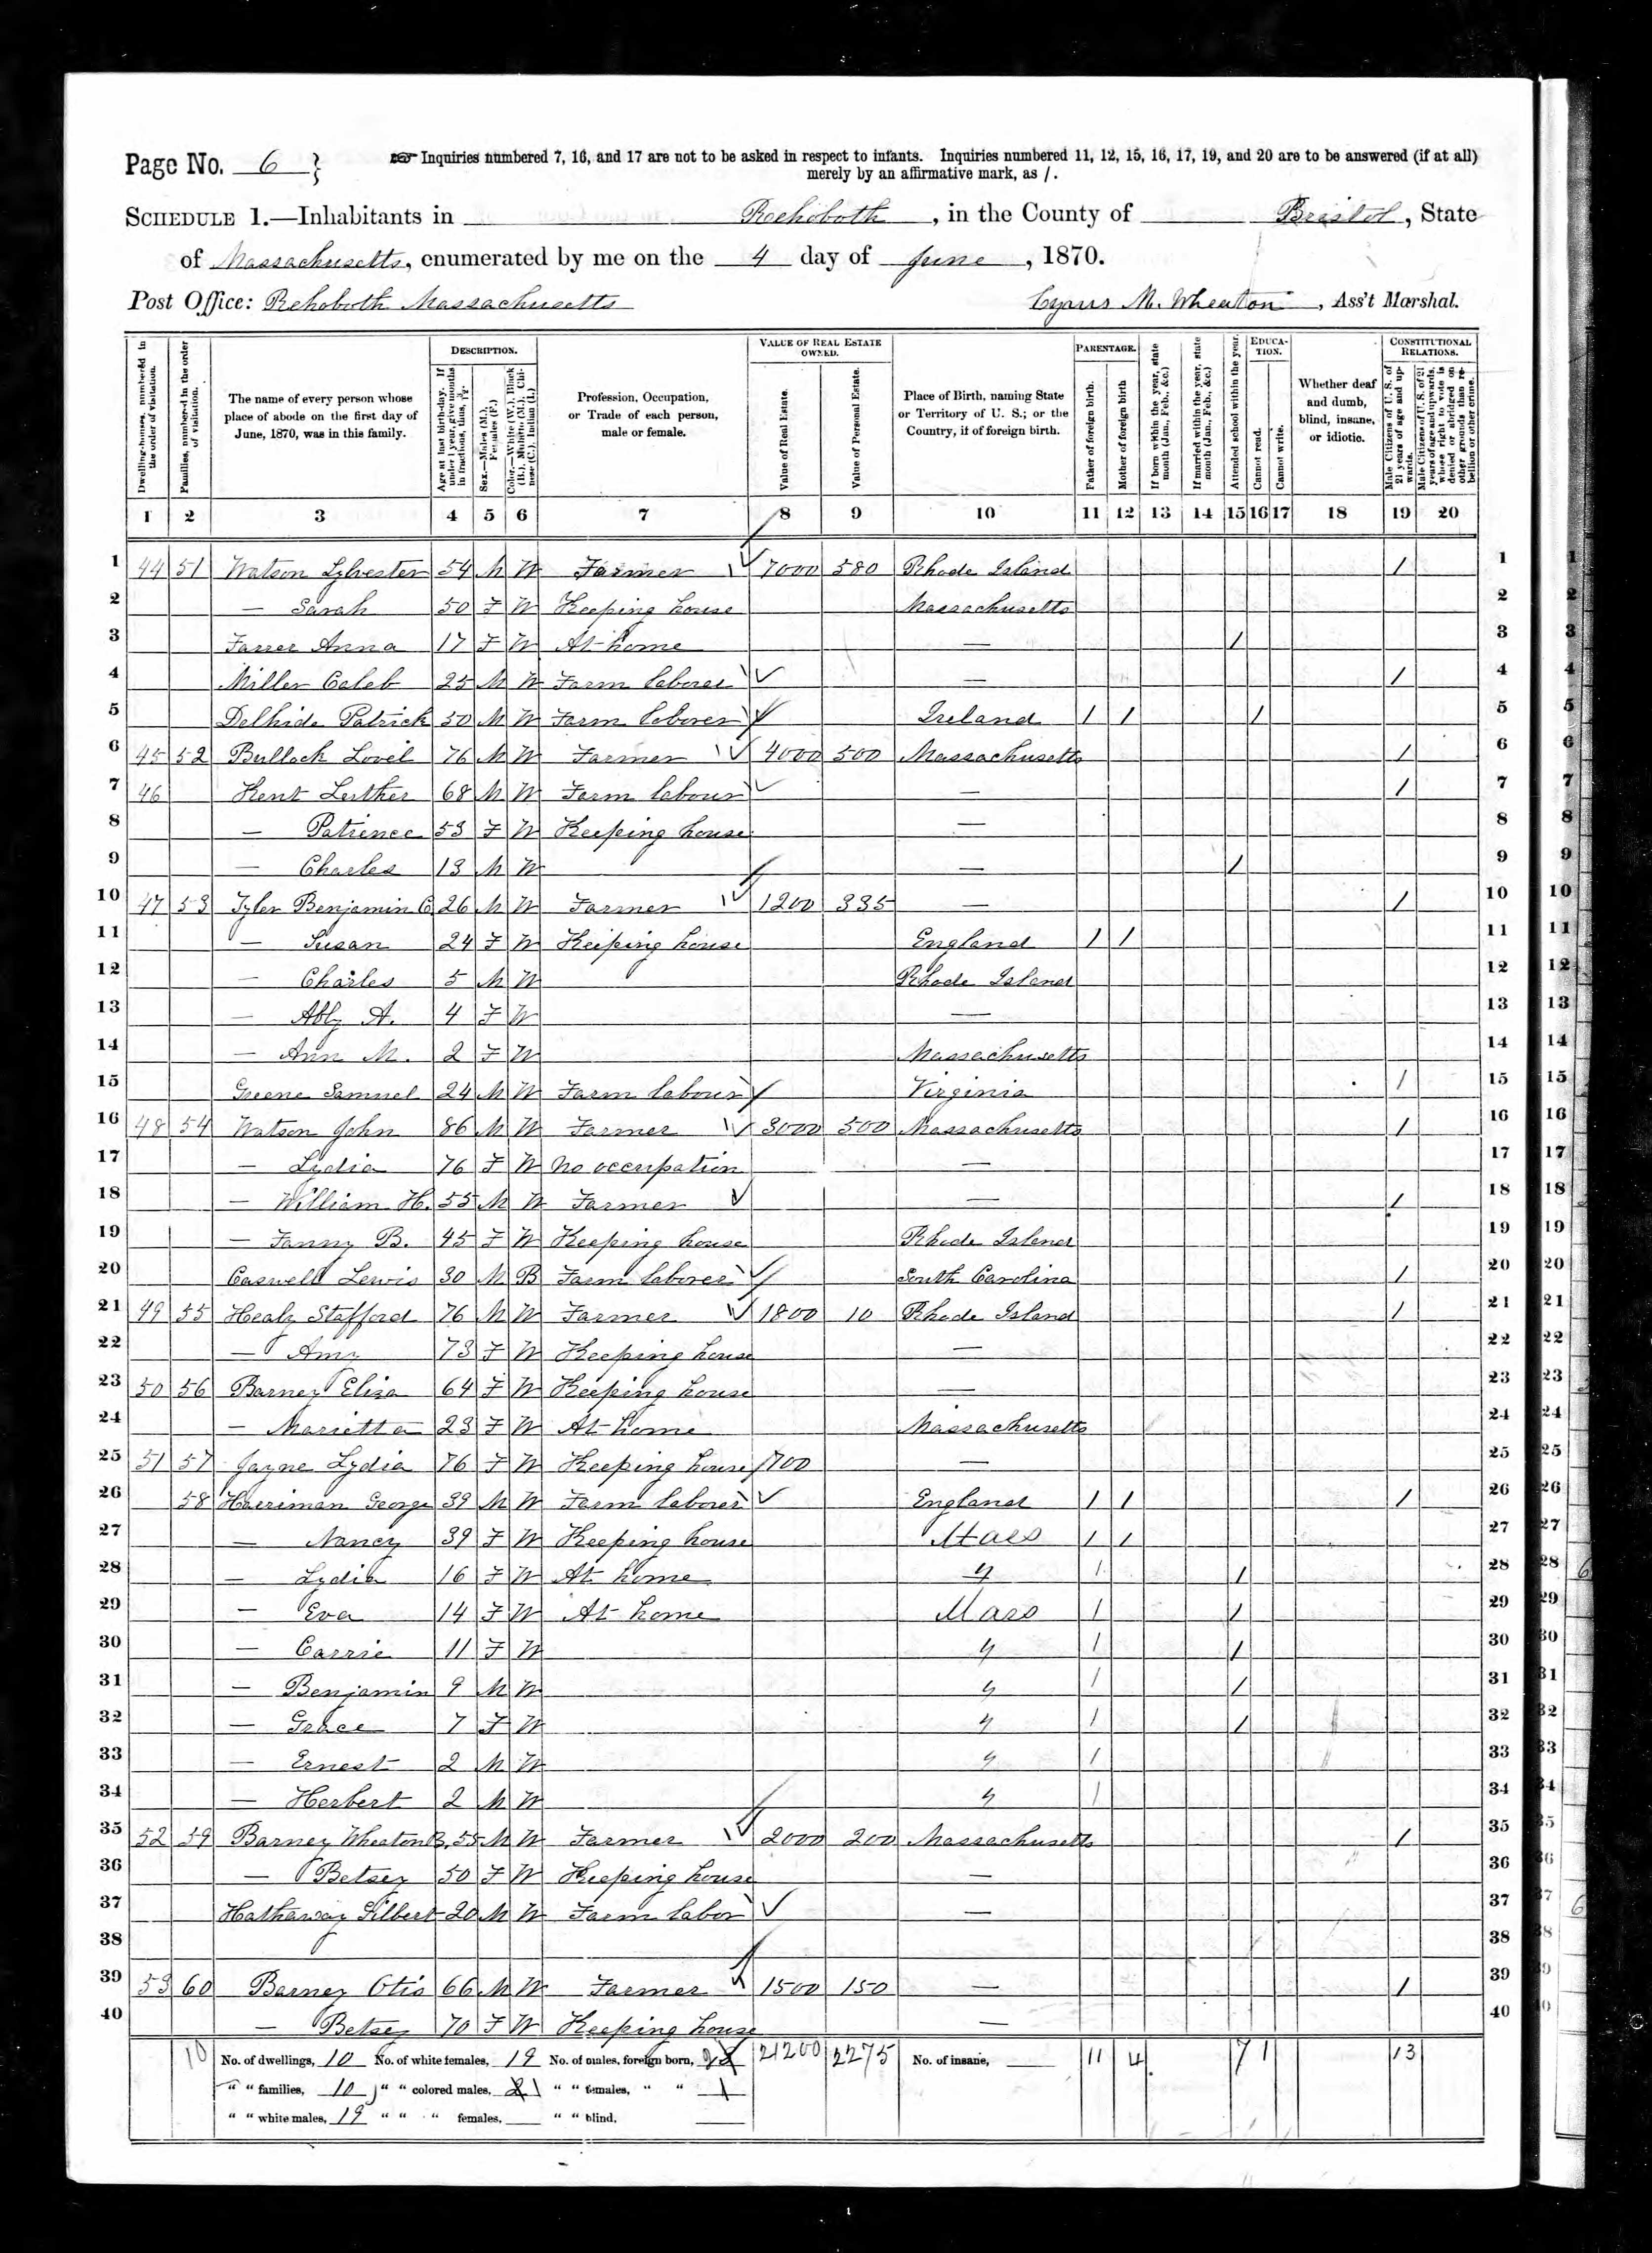 Page No. 6 } Inquiries numbered 7, 16, and 17 are not to be asked in respect to infants. Inquiries numbered 11, 12, 15, 16, 17, 19, and 20 are to be answered (if at all)
merely by an affirmative mark, as /.
SCHEDULE 1.—Inhabitants in Rehoboth, in the County of Bristol, State
of Massachusetts, enumerated by me on the 4 day of June, 1870.
Post Office: Rehoboth Massachusetts Cyrus M. Wheaton, Ass't Marshal.
Dwelling-houses, numbered in the order of visitation.
Families, numbered in the order of visitation.
The name of every person whose place of abode on the first day of June, 1870, was in this family.
DESCRIPTION.
Age at last birth-day. If under 1 year, give months in fractions, thus, 3/12.
Sex.—Males (M.), Females (F.)
Color.—White (W.), Black (B.), Mulatto (M.), Chinese (C.), Indian (I.)
Profession, Occupation, or Trade of each person, male or female.
VALUE OF REAL ESTATE OWNED.
Value of Real Estate.
Value of Personal Estate.
Place of Birth, naming State or Territory of U. S.; or the Country, if of foreign birth.
PARENTAGE.
Father of foreign birth.
Mother of foreign birth
If born within the year, state month (Jan., Feb., &c.)
If married within the year, state month (Jan., Feb., &c.)
Attended school within the year.
EDUCATION.
Cannot read.
Cannot write.
Whether deaf and dumb, blind, insane, or idiotic.
CONSTITUTIONAL RELATIONS.
Male Citizens of U. S. of 21 years of age and upwards.
Male Citizens of U. S. of 21 years of age and upwards, whose right to vote is denied or abridged on other grounds than rebellion or other crime.
1 2 3 4 5 6 7 8 9 10 11 12 13 14 15 16 17 18 19 20
1 44 51 Watson Sylvester 54 M W Farmer 7000 580 Rhode Island / 1
2 — Sarah 50 F W Keeping house Massachusetts 2
3 Farrer Anna 17 F W At home — / 3
4 Miller Caleb 25 M W Farm laborer — / 4
5 Delhide Patrick 50 M W Farm laborer Ireland / / / 5
6 45 52 Bullock Lovel 76 M W Farmer 4000 500 Massachusetts / 6
7 46 Kent Luther 68 M W Farm labour — / 7
8 — Patience 53 F W Keeping house — 8
9 — Charles 13 M W — / 9
10 47 53 Tyler Benjamin C 26 M W Farmer 1200 335 — / 10
11 — Susan 24 F W Keeping house England / / 11
12 — Charles 5 M W Rhode Island 12
13 — Abby A. 4 F W — 13
14 — Ann M. 2 F W Massachusetts 14
15 Greene Samuel 24 M W Farm labour Virginia / 15
16 48 54 Watson John 86 M W Farmer 3000 500 Massachusetts / 16
17 — Lydia 76 F W No occupation — 17
18 — William H. 55 M W Farmer — / 18
19 — Fanny B. 45 F W Keeping house Rhode Island 19
20 Caswell Lewis 30 M B Farm laborer South Carolina / 20
21 49 55 Healy Stafford 76 M W Farmer 1800 10 Rhode Island / 21
22 — Amy 73 F W Keeping house — 22
23 50 56 Barney Eliza 64 F W Keeping house — 23
24 — Marietta 23 F W At home Massachusetts 24
25 51 57 Jayne Lydia 76 F W Keeping house 700 — 25
26 58 Harriman George 39 M W Farm laborer England / / / 26
27 — Nancy 39 F W Keeping house Mass / / 27
28 — Lydia 16 F W At home " / / 28
29 — Eva 14 F W At home Mass / / 29
30 — Carrie 11 F W " / / 30
31 — Benjamin 9 M W " / / 31
32 — Grace 7 F W " / / 32
33 — Ernest 2 M W " / 33
34 — Herbert 2 M W " / 34
35 52 59 Barney Wheaton B. 55 M W Farmer 2000 200 Massachusetts / 35
36 — Betsey 50 F W Keeping house — 36
37 Hathaway Gilbert 20 M W Farm labor — 37
38 38
39 53 60 Barney Otis 66 M W Farmer 1500 150 — / 39
40 — Betsey 70 F W Keeping house — 40
10 No. of dwellings, 10 No. of white females, 19 No. of males, foreign born, 2 21200 2275 No. of insane, 11 4 7 1 13
" " families, 10 " " colored males, 1 " " females, " " 1
" " white males, 19 " " " females, " " blind,